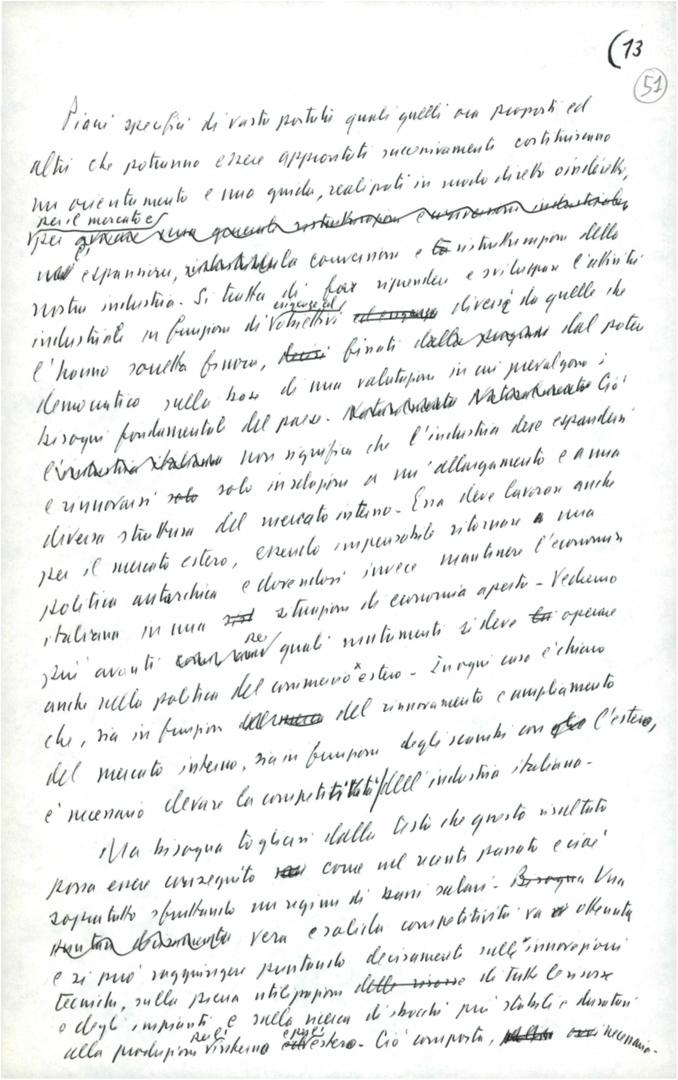 (13
51
Piani specifici di vasta portata quali quelli ora proposti ed
altri che potranno essere approntati successivamente costituiscono
un orientamento e una guida, realizzati in modo diretto o indiretto,
per il mercato e
per
espansione, la conversione e ristrutturazione della
nostra industria. Si tratta di far riprendere e sviluppare l'attività
esigenze ed
industriale in funzione di obiettivi diversi da quelle che
l'hanno sorretta finora, fissati dal potere
democratico sulla base di una valutazione in cui prevalgono i
bisogni fondamentali del paese. Ciò
non significa che l'industria deve espandersi
e rinnovarsi solo in relazione a un'allargamento e a una
diversa struttura del mercato interno. Essa deve lavorare anche
per il mercato estero, essendo impensabile ritornare a una
politica autarchica e dovendosi invece mantenere l'economia
italiana in una situazione di economia aperta. Vedremo
più avanti quali mutamenti si deve operare
anche nella politica del commercio estero. In ogni caso è chiaro
che, sia in funzione del rinnovamento e ampliamento
del mercato interno, sia in funzione degli scambi con l'estero,
è necessario elevare la competitività dell'industria italiana.
Ma bisogna togliersi dalla testa che questo risultato
possa essere conseguito come nel recente passato e cioè
sopratutto sfruttando un regime di bassi salari. Una
vera e solida competitività va ottenuta
e si può raggiungere puntando decisamente sulle innovazioni
tecniche, sulla piena utilizzazione di tutte le risorse
e degli impianti e sulla ricerca di sbocchi più stabili e duraturi
alla produzione per l'interno e per l'estero. Ciò comporta, necessario-